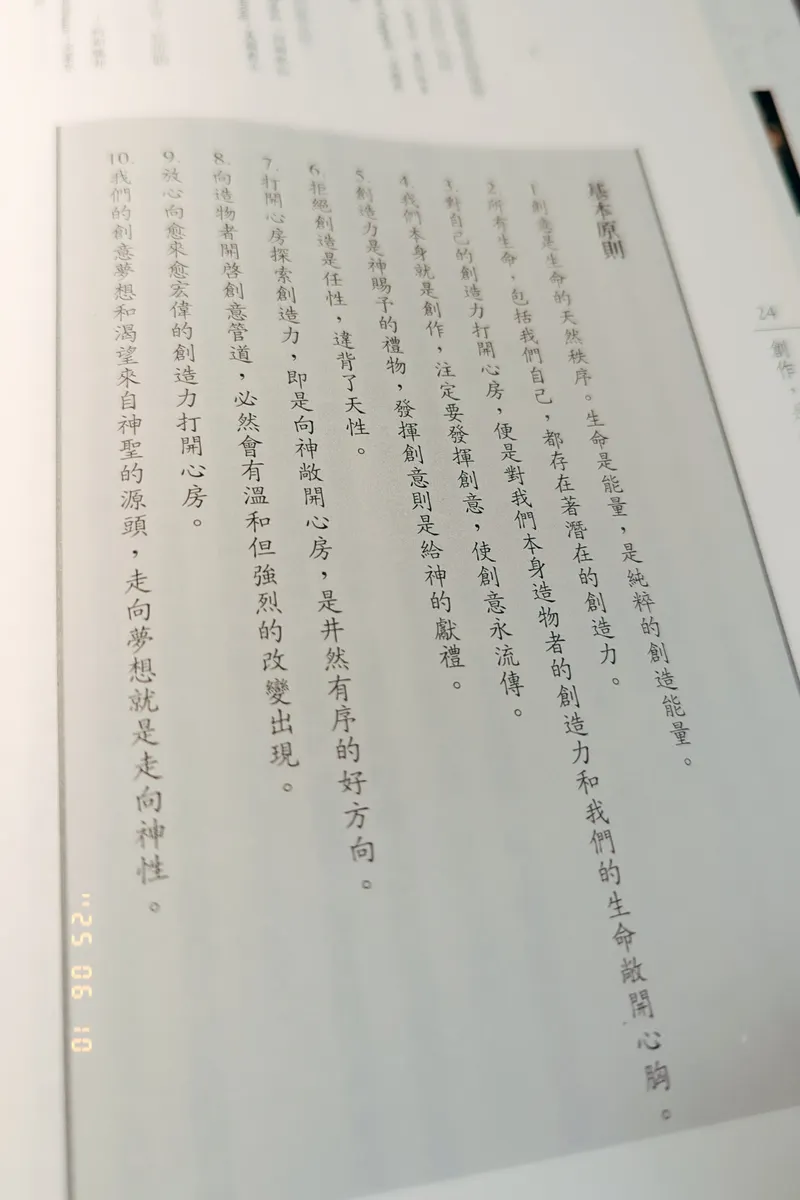 基本原則
1.創意是生命的天然秩序。生命是能量，是純粹的創造能量。
2.所有生命，包括我們自己，都存在著潛在的創造力。
3.對自己的創造力打開心房，便是對我們本身造物者的創造力和我們的生命敞開心胸。
4.我們本身就是創作，注定要發揮創意，使創意永流傳。
5.創造力是神賜予的禮物，發揮創意則是給神的獻禮。
6.拒絕創造是任性，違背了天性。
7.打開心房探索創造力，即是向神敞開心房，是井然有序的好方向。
8.向造物者開啓創意管道，必然會有溫和但強烈的改變出現。
9.放心向愈來愈宏偉的創造力打開心房。
10.我們的創意夢想和渴望來自神聖的源頭，走向夢想就是走向神性。
24
創作，